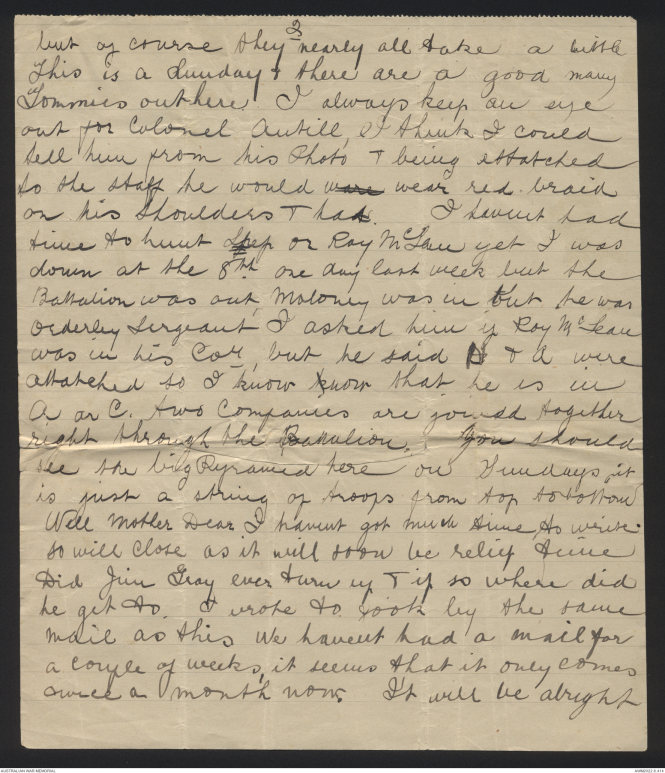 2
but of course they nearly all take a little
This is a Sunday & there are a good many
Tommies out here. I always keep an eye
out for Colonel Antill, I think I could
tell him from his Photo & being attatched
to the staff he would ware wear red braid
on his shoulders & hat. I havent had
time to hunt or Roy McLean yet I was
down at the 8th one day last week but the
Battalion was out, Moloney was in but he was
Orderley Sergeant I asked him if Roy McLean
was in his Coy, but he said & A were
attatched so I know know that he is in
A or C. two Companies are joined together
right through the Battalion. You should
see the big Pyramid here on Sundays, it
is just a string of troops from top to bottom
Well Mother Dear I havent got much time to write
so will close as it will soon be relief time
Did Jim Gray ever turn up & if so where did
he get to. I wrote to by the same
mail as this We havent had a mail for
a couple of weeks, it seems that it only comes
twice a month now. It will be alright
AUSTRALIAN WAR MEMORIAL